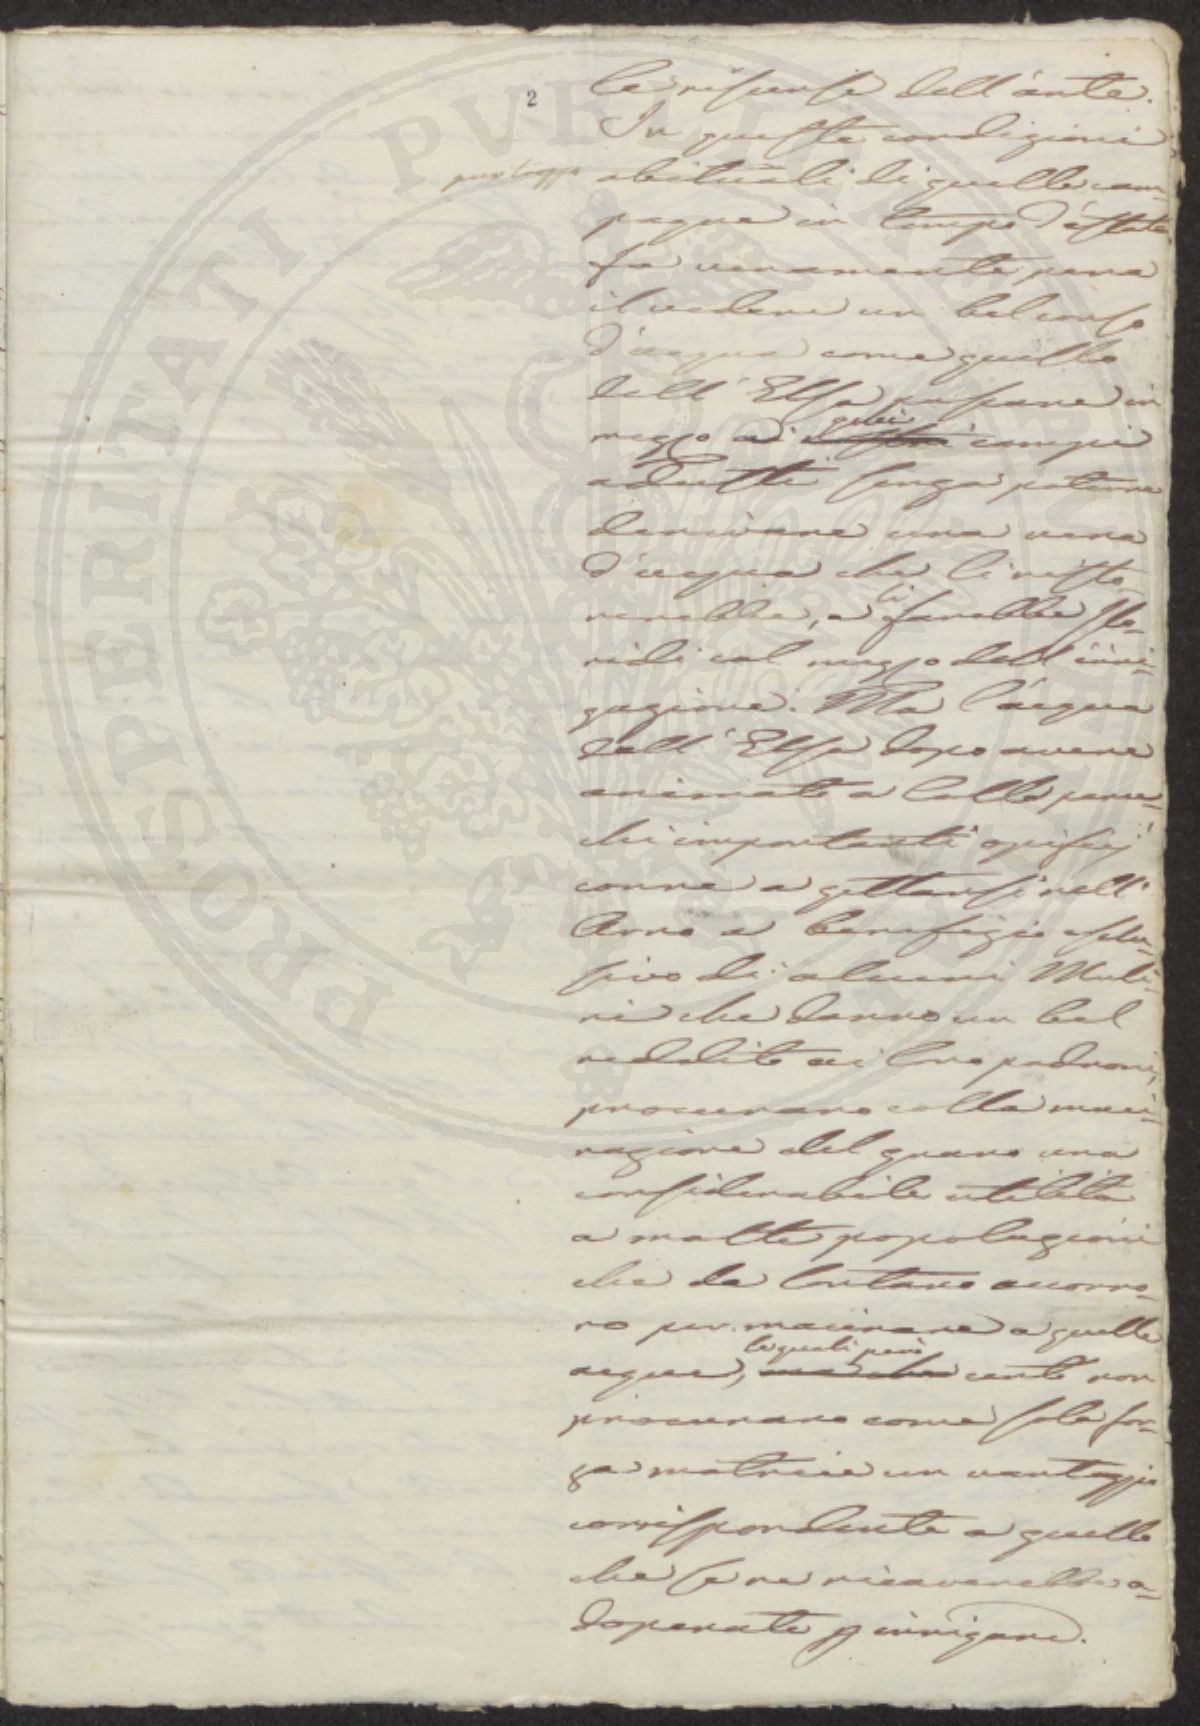 2
le risorse dell'arte.
In queste condizioni
purtroppo
abituali di quelle cam-
pagne in tempo d'estate
fa veramente pena
il vedere un bel corso
d'acqua come quello
dell'Elsa passare in
mezzo a quei campi
adusti senza poterne
derivare una vena
d'acqua che li risto-
rerebbe, e li farebbe flo-
ridi col mezzo dell'irri-
gazione. Ma l'acqua
dell'Elsa dopo avere
animate a Colle parec-
chi importanti opificj
corre a gettarsi nell'
Arno a benefizio esclu-
sivo di alcuni Muli-
ni che danno un bel
reddito ai loro padroni,
procurano colla maci-
nazione del grano una
considerabile utilità
a molte popolazioni
che da lontano accorro-
no per macinare a quelle
acque, le quali però certo non
procurano come sola for-
za motrice un vantaggio
corrispondente a quello
che se ne ricaverebbe a-
doperate p irrigare.
PROSPERITATI PVBLICAE